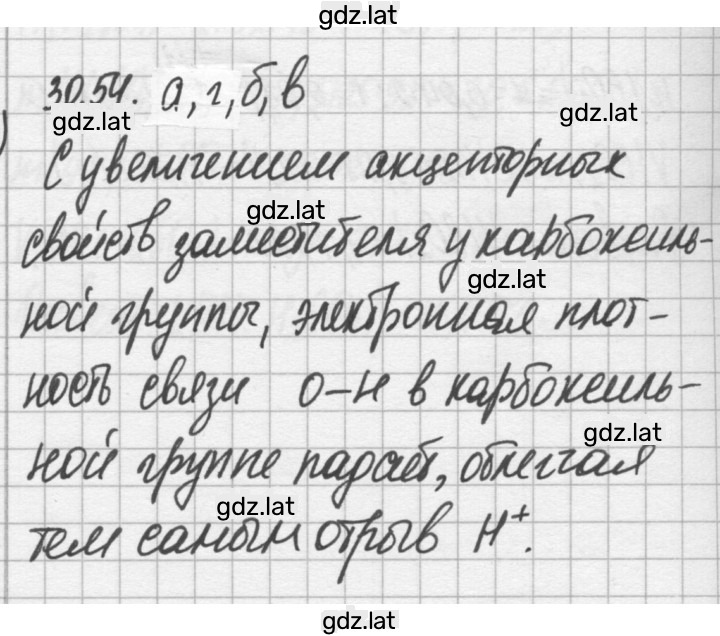 gdz.lat
30.54. а, г, б, в
gdz.lat
gdz.lat
С увеличением акцепторных
gdz.lat
свойств заместителя у карбоксиль-
gdz.lat
ной группы, электронная плот-
ность связи О-Н в карбоксиль-
gdz.lat
ной группе падает, облегчая
gdz.lat
тем самым отрыв H⁺.
gdz.lat